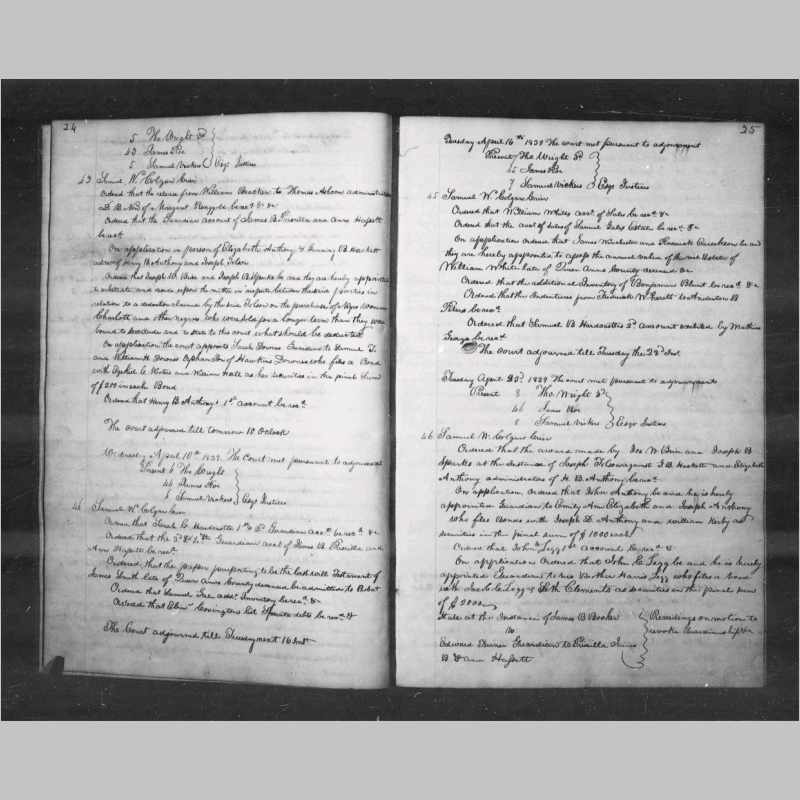 24
5 Tho Wright Sr
43 James Roe
5 Samuel Vickers Esqs Justices
43 Samuel W. Colgan Crier
Ordered that the release from William Hacket to Thomas Ashcom administrator
D. B. N. of Margaret Ringgold be rect &c
Ordered that the Guardian account of James B Priscilla and Ann Hogsett
be rect
On application in person of Elizabeth Anthony &
admrs of Henry B Anthony and Joseph T
Ordered that Joseph W and Joseph B Sparks be and they are hereby appointed
to arbitrate and award upon the matters in dispute between the said parties in
relation to a deduction claimed by the said on the purchase of a Negro woman
Charlotte and other negros who were sold for a longer term than they were
bound to and to state to this court what should be deducted
On application the court appoints Sarah Downes Guardian to Samuel T.
and William H Downes Orphan Son of Hawkins Downes who files a Bond
with and William Hall as her securities in the penal Sum
of $200 in each Bond
Ordered that Henry B Anthony's 1st account be rect
The court adjourned till tomorrow 10 Oclock
Wednesday April 10th 1839. The Court met pursuant to adjournment
Present 6 Tho Wright
44 James Roe
6 Samuel Vickers Esqs Justices
44 Samuel W. Colgan Crier
Ordered that Sarah C. 1st & 2d Guardian acct be rect &c
Ordered that the 3d & 4th Guardian acct of James B. Priscilla and
Ann Hogsett be rect
Ordered that the paper purporting to be the last will & Testament of
James Smith late of Queen Anns County deceased be admitted to Probat
Ordered that Samuel addl Inventory be rect &c
Ordered that Covingtons list Sperate debts be rect &c
The Court adjourned till Tuesday next 16 Inst
25
Tuesday April 16th 1839 The court met pursuant to adjournment
Present Tho Wright Sr
45 James Roe
7 Samuel Vickers Esqs Justices
45 Samuel W. Colgan Crier
Ordered that William Whites acct of Sales be rect &c
Ordered that the acct of Sales of Samuel Gales Estate be rect &c
On application ordered that James Winchester and be and
they are hereby appointed to assess the annual value of the real Estate of
William White late of Queen Anns County deceased &c
Ordered that the additional Inventory of Benjamin Blunt be rect &c
Ordered that the Indentures from to B
be rect
Ordered that Samuel B Hardcastles 3d account exhibited by Mathias
George be rect
The court adjourned till Tuesday the 23d Inst.
Tuesday April 23d 1839 The court met pursuant to adjournment
Present 8 Tho Wright Sr
46 James Roe
8 Samuel Vickers Esqs Justices
46 Samuel W. Colgan Crier
Ordered that the award made by Jos W and Joseph B
Sparks at the Instance of Joseph T against J. B. Hackett and Elizabeth
Anthony administrators of H. B. Anthony be rect
On application, ordered that John Anthony be and he is hereby
appointed Guardian to Emily Ann Elizabeth and Joseph Anthony
who files Bonds with Joseph D. Anthony and William Kirby as
securities in the penal sum of $1000 each
Ordered that John 1st account be rect &c
On application ordered that John C. Legg be and he is hereby
appointed Guardian to his Brother Harris Legg who files a bond
with C. Legg & Seth Clements as securities in the penal sum
of $2000
State at the Instance of James B Booker Proceedings on motion to
vs revoke Guardianship &c
Edward Turner Guardian to Priscilla James
B & Ann Hogsett